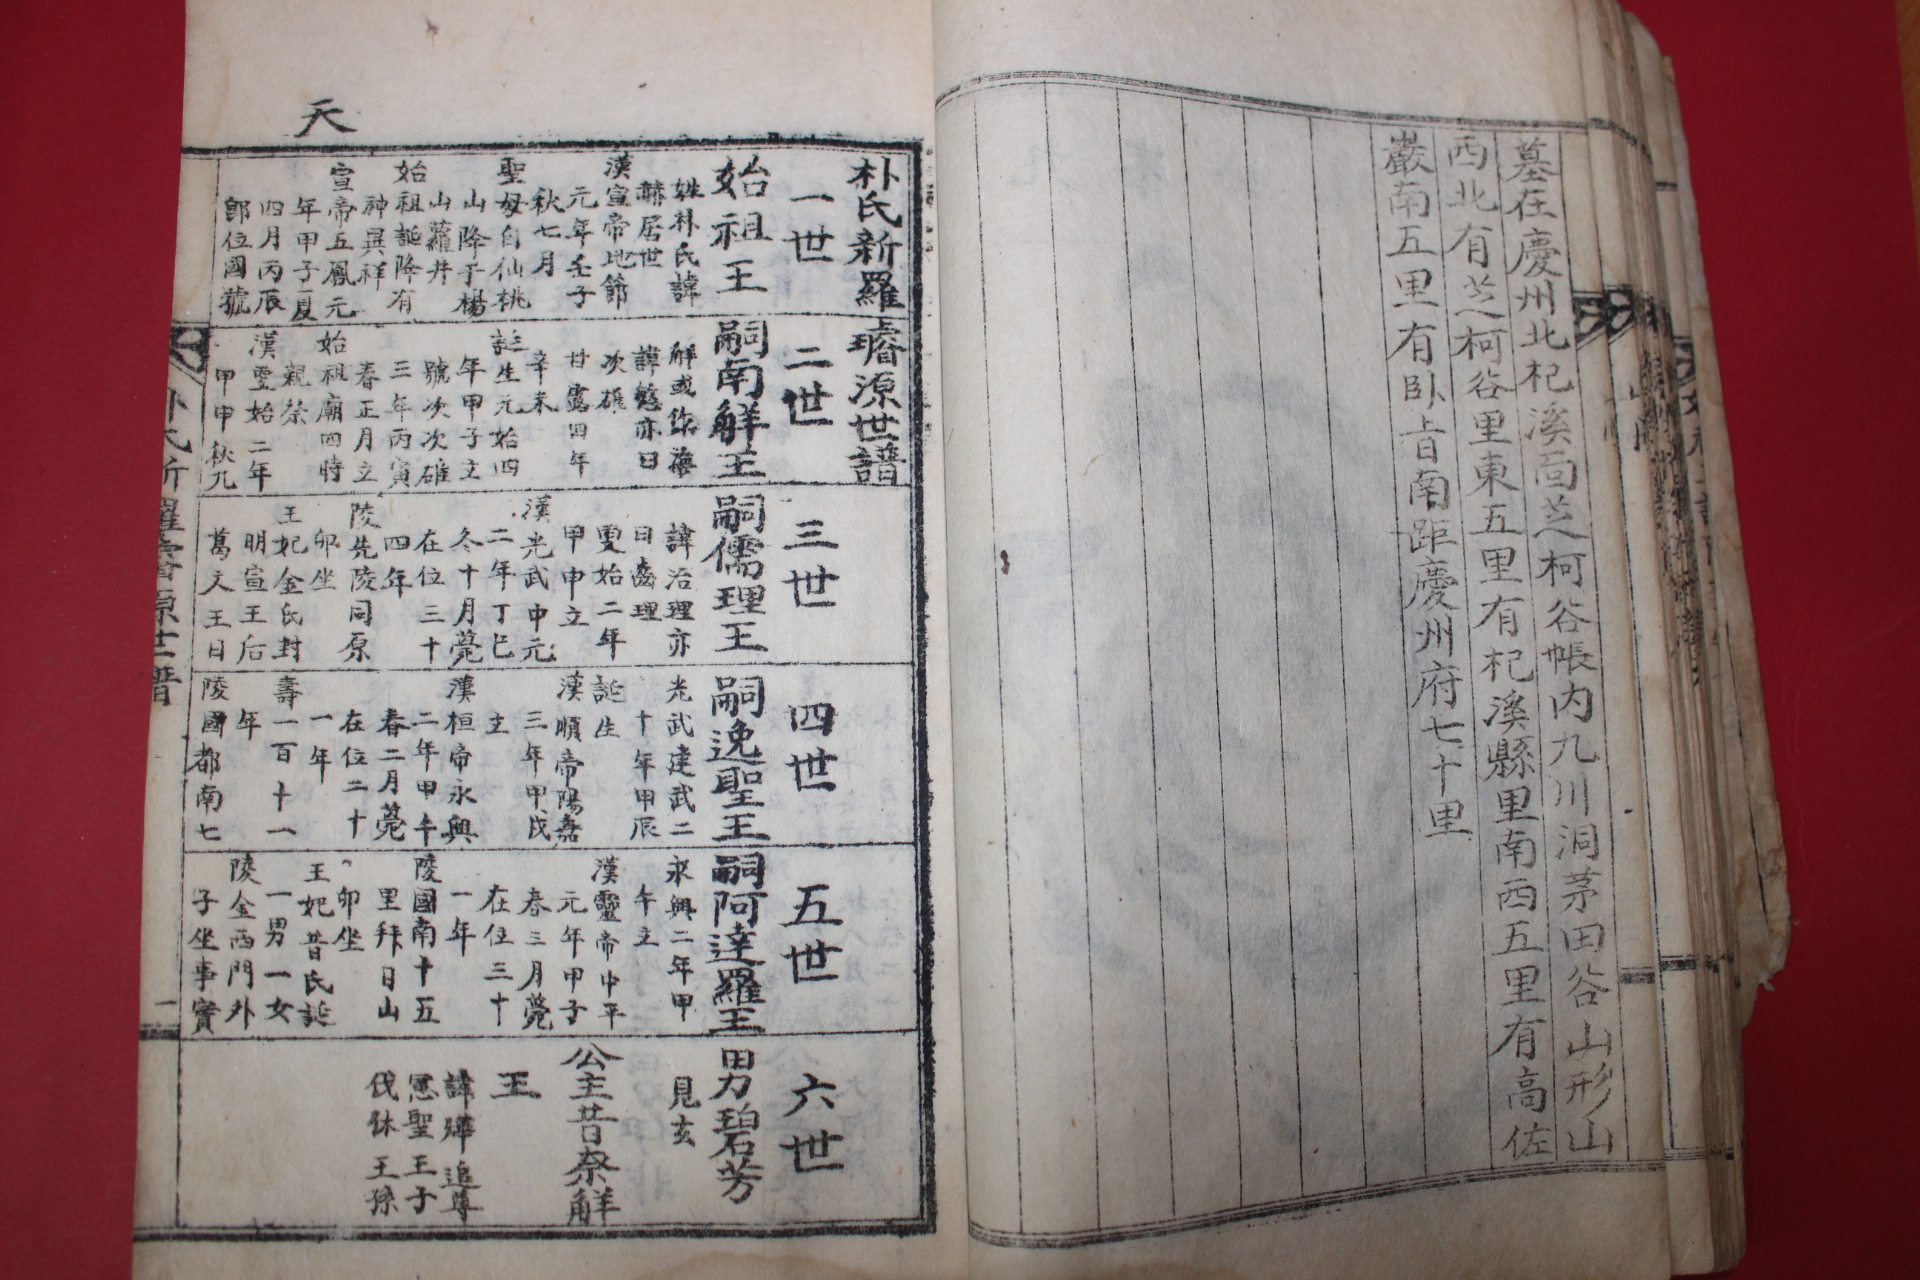 墓在慶州北杞溪面芝柯谷帳内九川洞茅田谷山形山
西北有芝柯谷里東五里有杞溪縣里南西五里有高佐
巖南五里有臥旨南距慶州府七十里
天
朴氏新羅璿源世譜
一世
始祖王
姓朴氏諱
赫居世
漢宣帝地節
元年壬子
秋七月
聖母自仙桃
山降于楊
山蘿井
始祖誕降有
神異祥
宣帝五鳳元
年甲子夏
四月丙辰
卽位國號
二世
嗣南解王
解或作
諱慈亦曰
次雄
甘露四年
辛未
誕生元始四
年甲子立
號次次雄
三年丙寅
春正月立
始祖廟四時
親祭
漢更始二年
甲申秋九
三世
嗣儒理王
諱治理亦
曰齒理
更始二年
甲申立
漢光武中元
二年丁巳
冬十月薨
在位三十
四年
陵先陵同原
卯坐
王妃金氏封
明宣王后
葛文王日
四世
嗣逸聖王
光武建武二
十年甲辰
誕生
漢順帝陽嘉
三年甲戌
立
漢桓帝永興
二年甲午
春二月薨
在位二十
一年
壽一百十一
年
陵國都南七
五世
嗣阿達羅王
永興二年甲
午立
漢靈帝中平
元年甲子
春三月薨
在位三十
一年
陵國南十五
里拜日山
卯坐
王妃昔氏誕
一男一女
陵金西門外
子坐事實
六世
男碧芳
見玄
公主昔奈解
王
諱 追尊
惠聖王子
伐休王孫
朴氏新羅璿源世譜
一